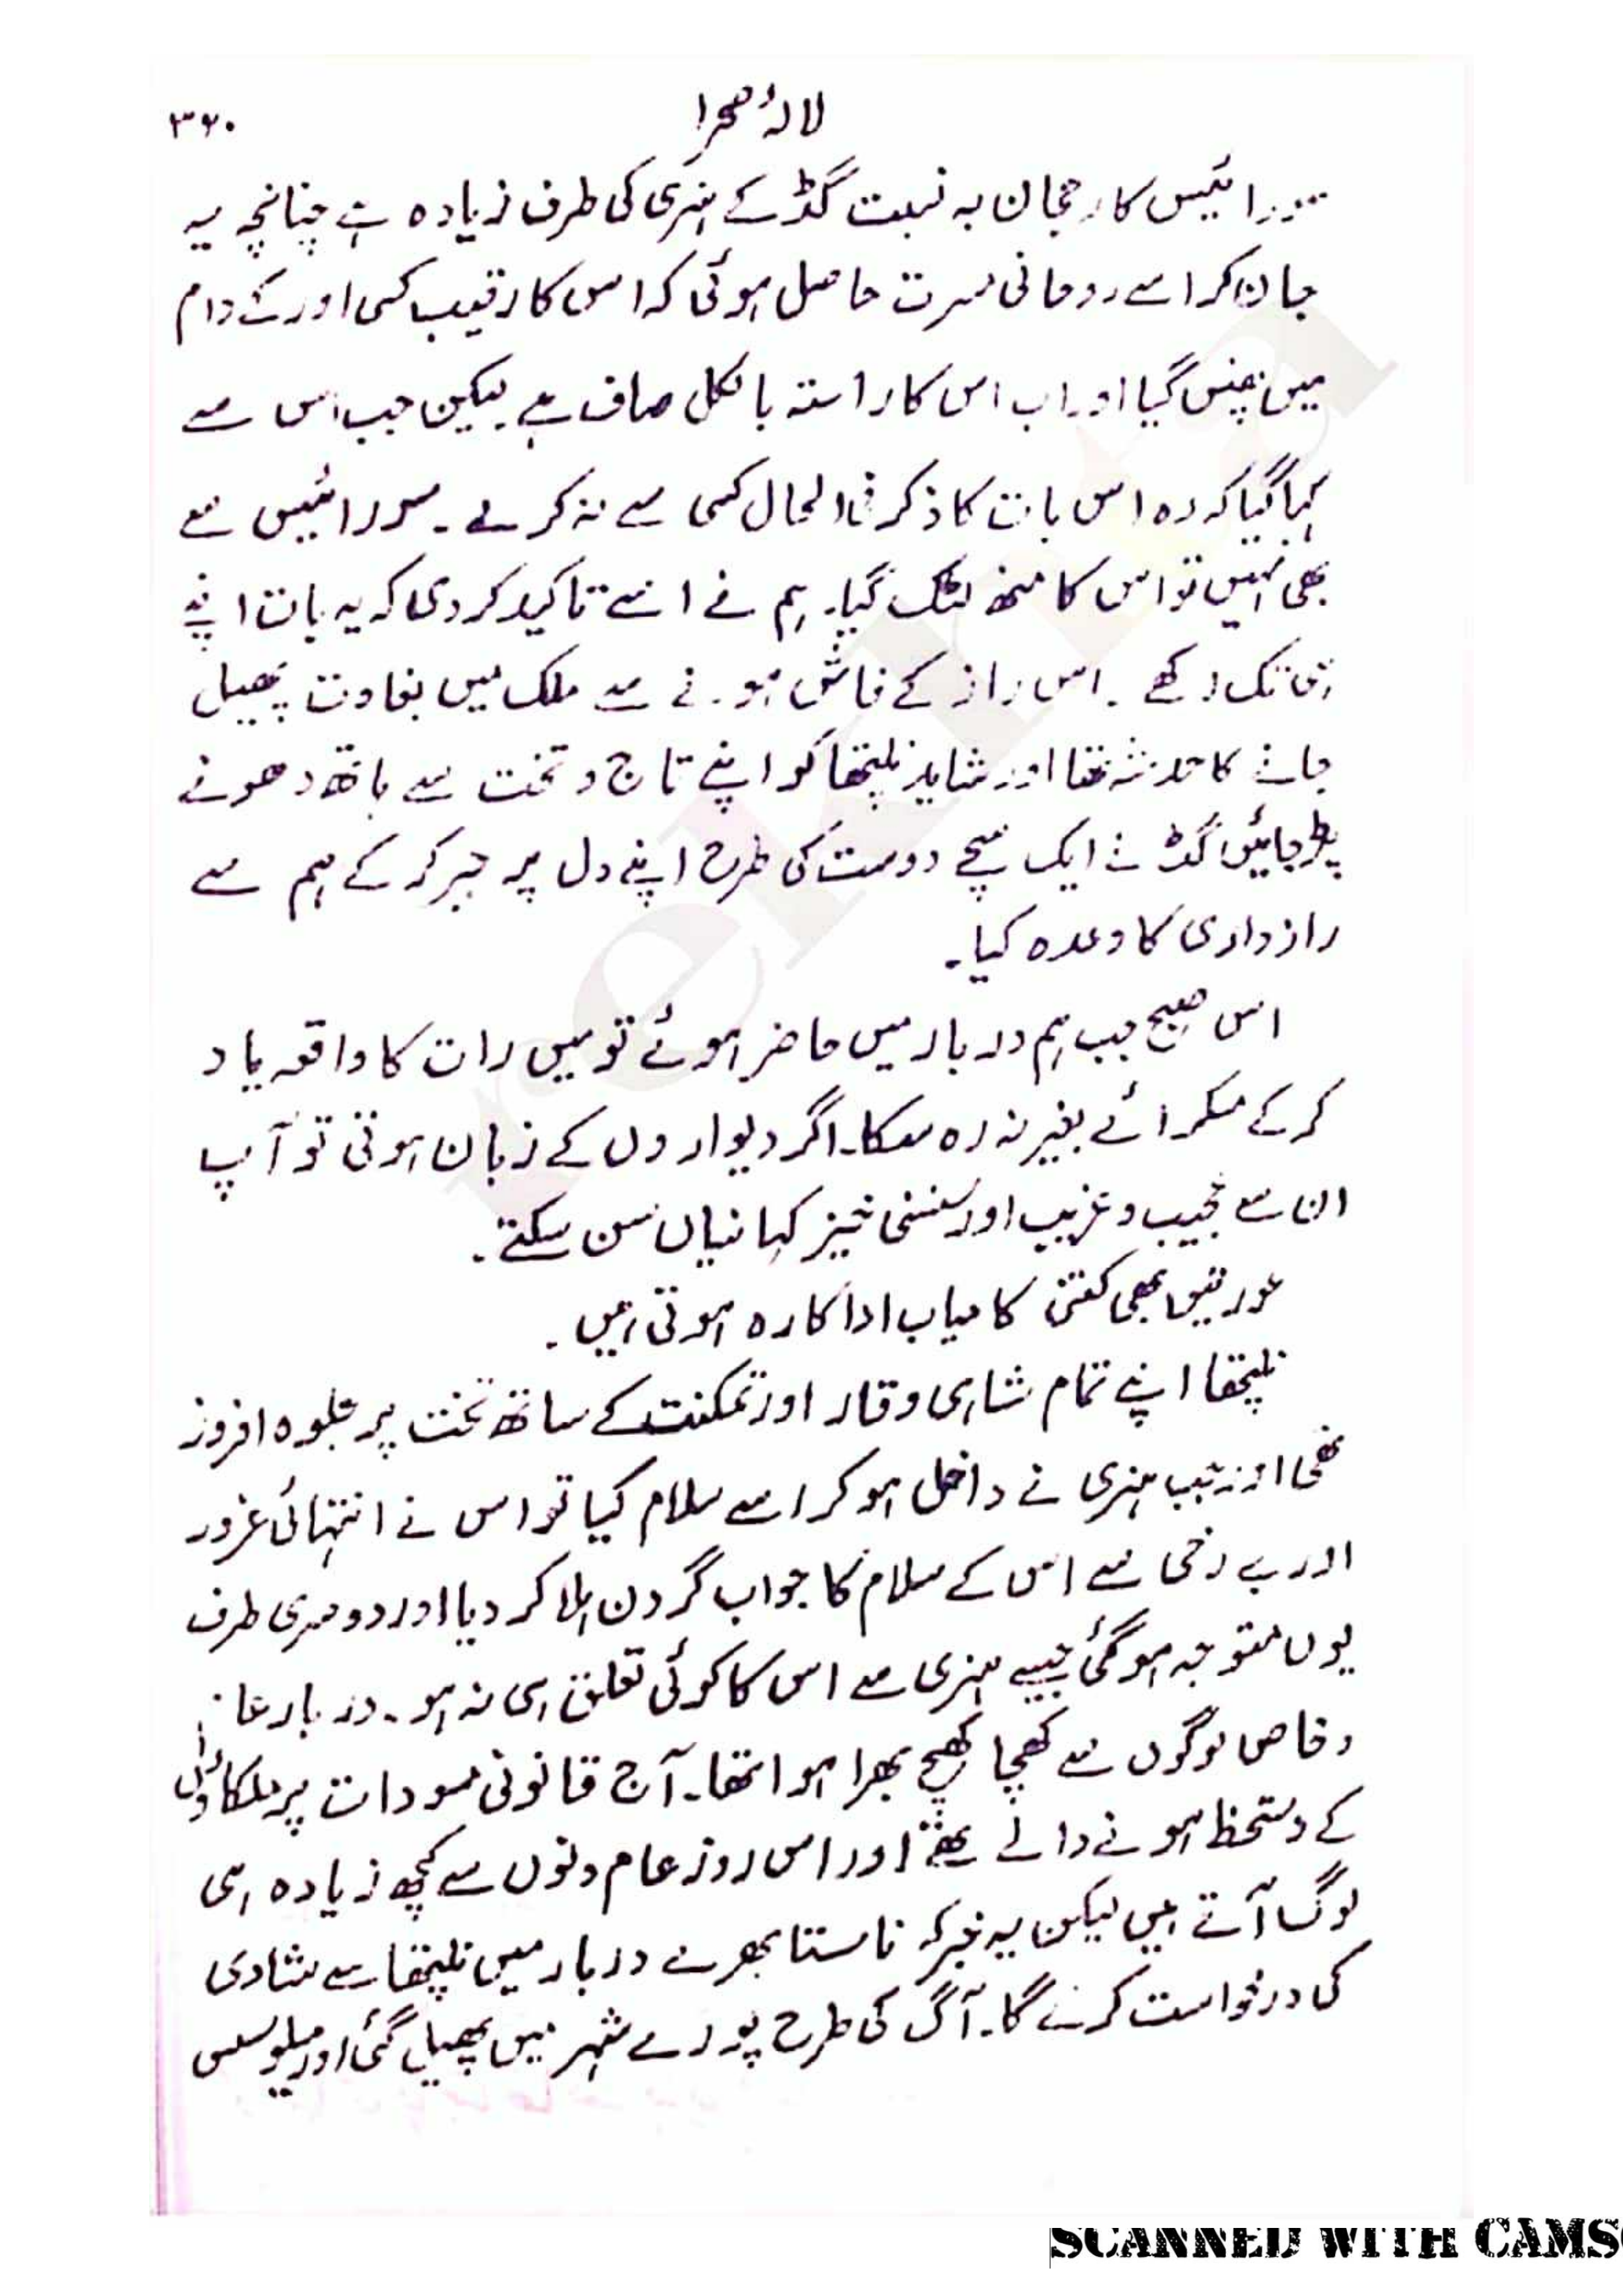 لالۂ صحرا
۳۶۰
سورائیس کا رجحان بہ نسبت گڈ کے ہنری کی طرف زیادہ ہے چنانچہ یہ
جان کر اسے روحانی مسرت حاصل ہوئی کہ اس کا رقیب کسی اور کے دام
میں پھنس گیا اور اب اس کا راستہ بالکل صاف ہے۔ لیکن جب اس سے
کہا گیا کہ وہ اس بات کا ذکر فی الحال کسی سے نہ کرے۔ سورائیس سے
بھی نہیں تو اس کا منھ لٹک گیا۔ ہم نے اسے تاکید کر دی کہ یہ بات اپنے
تک رکھے۔ اس راز کے فاش ہونے سے ملک میں بغاوت پھیل
جانے کا خدشہ تھا اور شاید نلیپتھا کو اپنے تاج و تخت سے ہاتھ دھونے
پڑ جائیں گڈ نے ایک سچے دوست کی طرح اپنے دل پر جبر کر کے ہم سے
رازداری کا وعدہ کیا۔
اس صبح جب ہم دربار میں حاضر ہوئے تو میں رات کا واقعہ یاد
کر کے مسکرائے بغیر نہ رہ سکا۔ اگر دیواروں کے زبان ہوتی تو آپ
ان سے عجیب و غریب اور سنسنی خیز کہانیاں سن سکتے۔
عورتیں بھی کتنی کامیاب اداکارہ ہوتی ہیں۔
نلیپتھا اپنے تمام شاہی وقار اور تمکنت کے ساتھ تخت پر جلوہ افروز
تھی اور جب ہنری نے داخل ہو کر اسے سلام کیا تو اس نے انتہائی غرور
اور بے رخی سے اس کے سلام کا جواب گردن ہلا کر دیا اور دوسری طرف
یوں متوجہ ہو گئی جیسے ہنری سے اس کا کوئی تعلق ہی نہ ہو۔ دربار عام
و خاص لوگوں سے کھچا کھچ بھرا ہوا تھا۔ آج قانونی مسودات پر ملکاؤں
کے دستخط ہونے والے تھے اور اس روز عام دنوں سے کچھ زیادہ ہی
لوگ آتے ہیں لیکن یہ خبر کہ ناستا بھرے دربار میں نلیپتھا سے شادی
کی درخواست کرنے گا۔ آگ کی طرح پورے شہر میں پھیل گئی اور میلوسس
SCANNED WITH CAMS